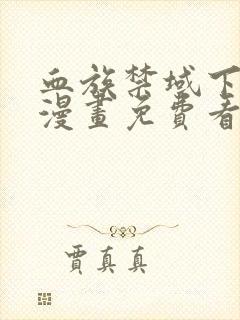 血族禁域下
漫畫免費看
賈真真